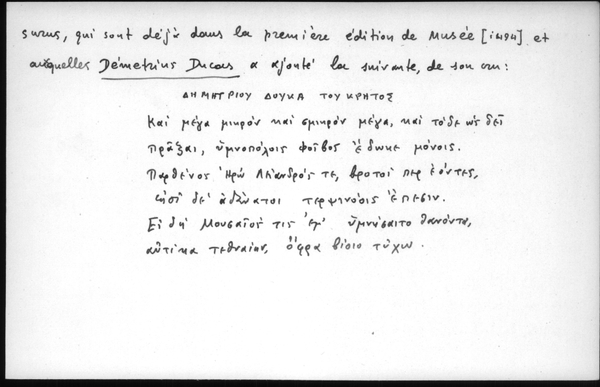 surus, qui sont déjà dans la première édition de Musée [1494] et
auxquelles Démétrius Ducas a ajouté la suivante, de son cru:
ΔΗΜΗΤΡΙΟΥ ΔΟΥΚΑ ΤΟΥ ΚΡΗΤΟΣ
Καὶ μέγα μικρὸν καὶ σμικρὸν μέγα, καὶ τόδε ὡς δεῖ
πρᾶξαι, ὑμνοπόλοις Φοῖβος ἔδωκε μόνοις.
Παρθένος Ἡρὼ Λέανδρός τε, βροτοί περ ἐόντες,
εἰσὶ δι' ἀθάνατοι τερψινόοις ἔπεσιν.
Εἰ δὴ Μουσαῖός τις ἔμ' ὑμνήσαιτο θανόντα,
αὐτίκα τεθναίην, ὄφρα βίοιο τύχω.